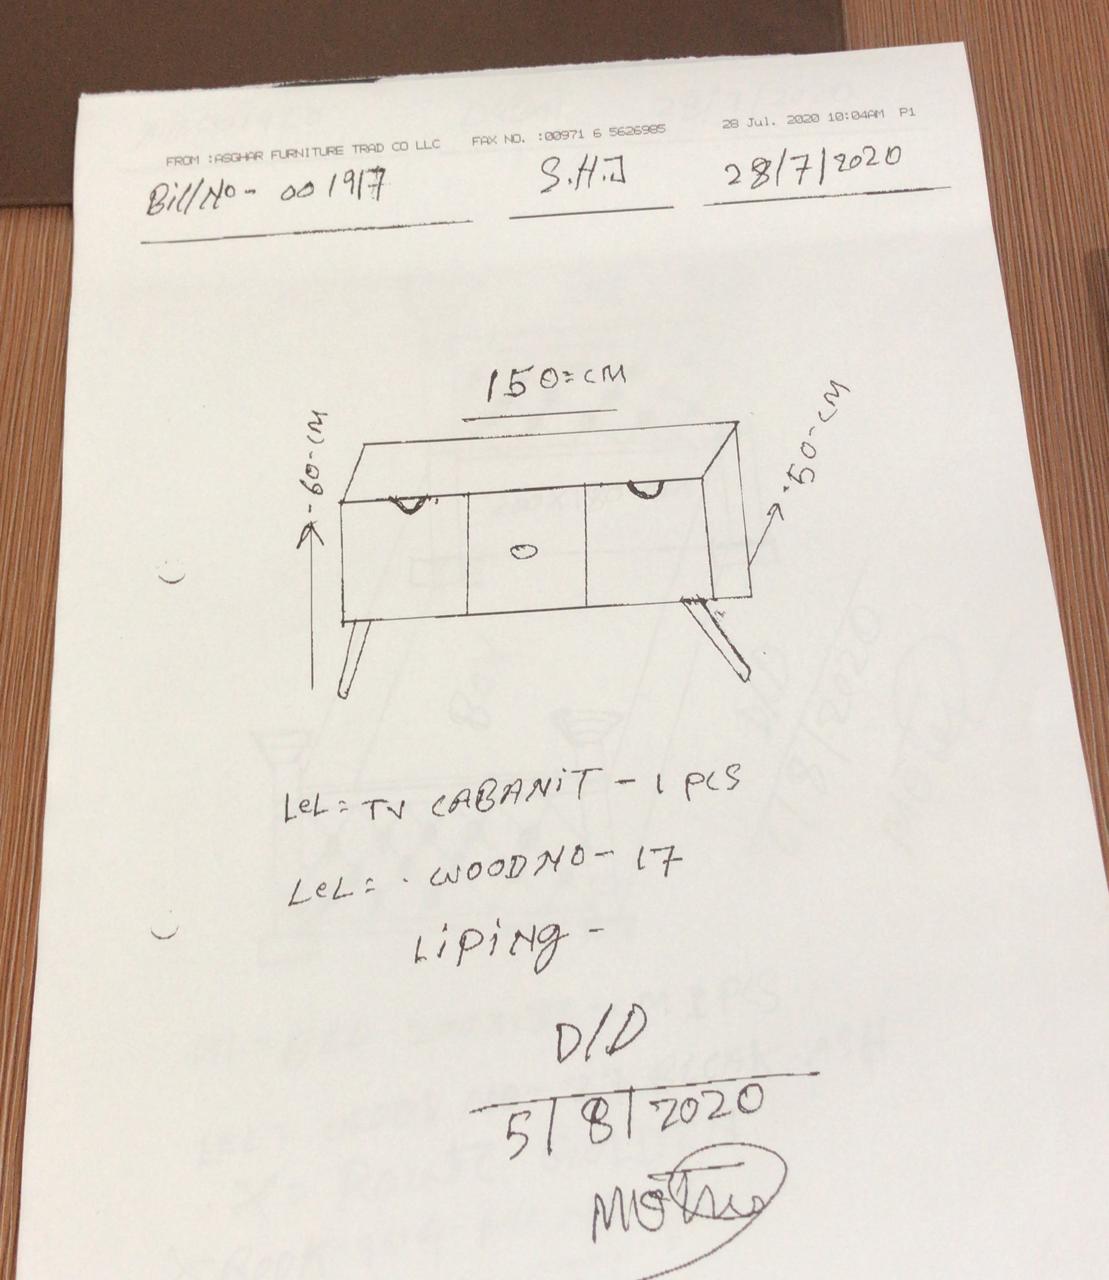 FROM :ASGHAR FURNITURE TRAD CO LLC FAX NO. :00971 6 5626985 28 Jul. 2020 10:04AM P1
Bill/No- 001917 S.H.J 28/7/2020
150=CM
-60-CM
50-CM
LeL= TV CABANiT - 1 PCS
LeL= . WOOD NO - 17
LiPiNg -
D/D
5/8/2020